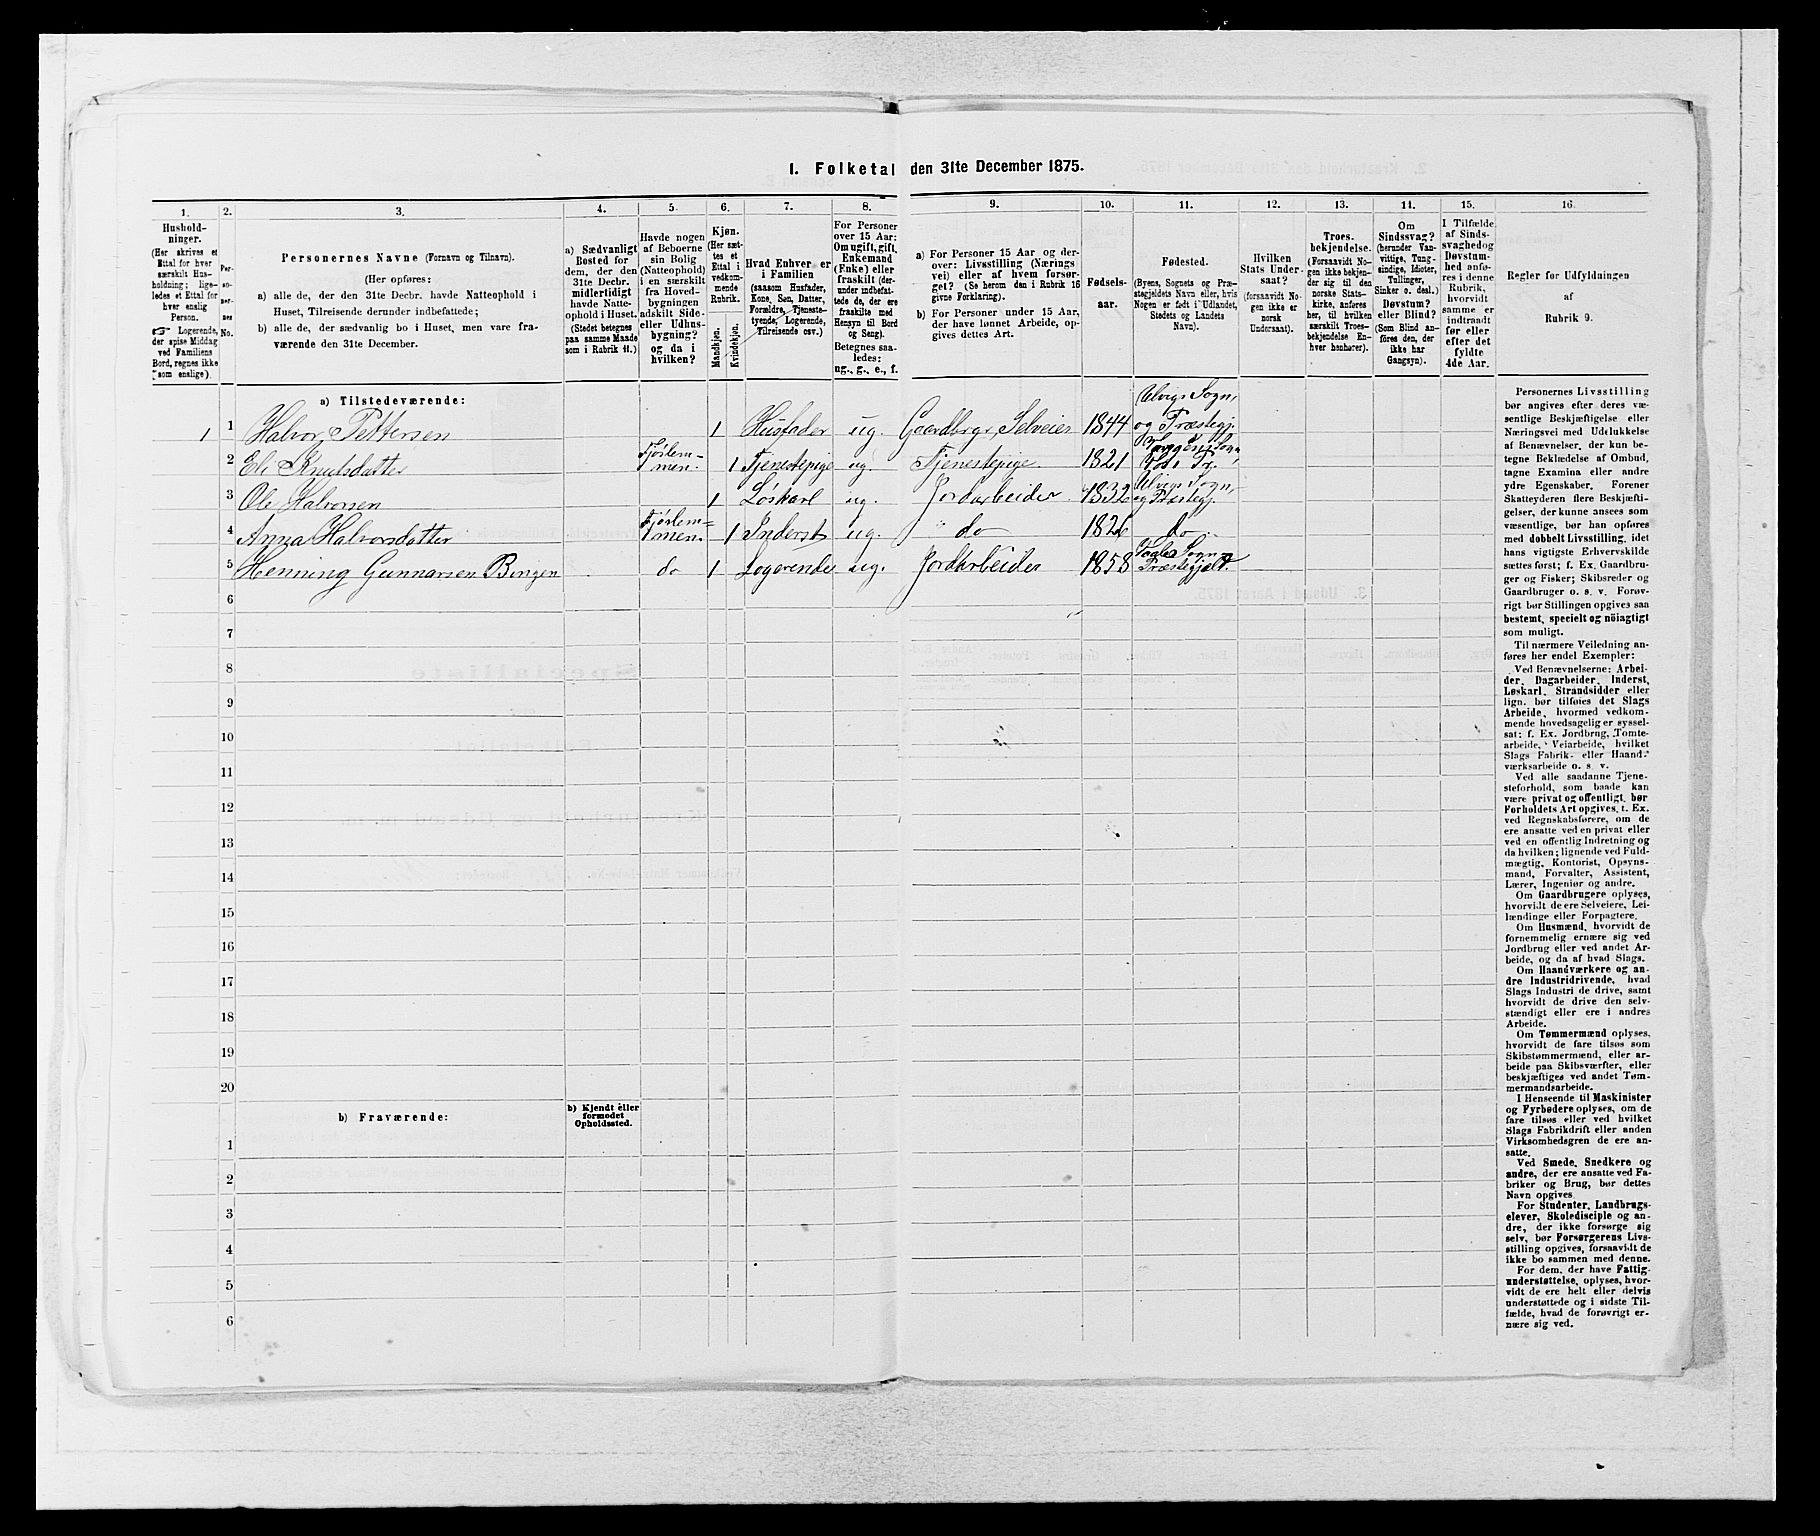 1. Folketal den 31te December 1875.
1. 2. 3. 4. 5. 6. 7. 8. 9. 10. 11. 12. 13. 11. 15. 16.
Hushold-
ninger.
(Her skrives et
Ettal for hver
særskilt Hus-
holdning; lige-
ledes et Ettal for
hver enslig
Person.
☞ Logerende,
der spise Middag
ved Familiens
Bord, regnes ikke
som enslige).
Per-
so-
ner-
nes
No.
Personernes Navne (Fornavn og Tilnavn).
(Her opføres:
a) alle de, der den 31te Decbr. havde Natteophold i
Huset, Tilreisende derunder indbefattede;
b) alle de, der sædvanlig bo i Huset, men vare fra-
værende den 31te December.
a) Sædvanligt
Bosted for
dem, der den
31te Decbr.
midlertidigt
havde Natte-
ophold i Huset.
(Stedet betegnes
paa samme Maade
som i Rubrik 11.)
Havde nogen
af Beboerne
sin Bolig
(Natteophold)
i en særskilt
fra Hoved-
bygningen
adskilt Side-
eller Udhus-
bygning?
og da i
hvilken?
Kjøn.
(Her sæt-
tes et
Ettal i
vedkom-
mende
Rubrik.
Mandkjøn.
Kvindekjøn.
Hvad Enhver er
i Familien
(saasom Husfader,
Kone, Søn, Datter,
Forældre, Tjeneste-
tyende, Logerende,
Tilreisende osv.)
For Personer
over 15 Aar:
Om ugift, gift,
Enkemand
(Enke) eller
fraskilt (der-
under indbefat-
tede de, der ere
fraskilte med
Hensyn til Bord
og Seng).
Betegnes saa-
ledes:
ug., g., e., f.
a) For Personer 15 Aar og der-
over: Livsstilling (Nærings
vei) eller af hvem forsør-
get? (Se herom den i Rubrik 16
givne Forklaring).
b) For Personer under 15 Aar,
der have lønnet Arbeide, op-
gives dettes Art.
Fødsels-
aar.
Fødested.
(Byens, Sognets og Præ-
stegjeldets Navn eller, hvis
Nogen er født i Udlandet,
Stedets og Landets
Navn).
Hvilken
Stats Under-
saat?
(forsaavidt No-
gen ikke er
norsk
Undersaat).
Troes-
bekjendelse.
(Forsaavidt No-
gen ikke bekjen-
der sig til den
norske Stats-
kirke, anføres
her, til hvilken
særskilt Troes-
bekjendelse En-
hver henhører).
Om
Sindssvag?
(herunder Van-
vittige, Tung-
sindige, Idioter,
Tullinger,
Sinker o. desl.)
Døvstum?
eller Blind?
(Som Blind an-
føres den, der
ikke har
Gangsyn).
I Tilfælde
af Sinds-
svaghedog
Døvstum-
hed anfø-
res i denne
Rubrik,
hvorvidt
samme er
indtraadt
før eller
efter det
fyldte
4de Aar.
Regler for Udfyldningen
af
Rubrik 9.
a) Tilstedeværende:
1 1 Halvor Pettersen 1 Husfader ug. Gaardbrgr, Selveier 1844 Ulvigs Sogn, og Præstegj.
2 Eli Knutsdatter Fjöslem-men. 1 Tjenestepige ug. Tjenestepige. 1821
3 Ole Halvorsen 1 Löskarl ug. Jordarbeider 1832 Ulvigs Sogn, og Præstegj.
4 Anna Halvorsdatter Fjöslem-men. 1 Inderst ug. do 1826 do
5 Henning Gunnarsen do 1 Logerende ug. Jordarbeider 1858 Sogn Præstegjelt.
6
7
8
9
10
11
12
13
14
15
16
17
18
19
20
b) Fraværende:
b) Kjendt eller
formodet
Opholdssted.
1
2
3
4
5
6
Personernes Livsstilling
bør angives efter deres væ-
sentlige Beskjæftigelse eller
Næringsvei med Udelukkelse
af Benævnelser, der kun be-
tegne Beklædelse af Ombud,
tagne Examina eller andre
ydre Egenskaber. Forener
Skatteyderen flere Beskjæfti-
gelser, der kunne ansees som
væsentlige, bør han opføres
med dobbelt Livsstilling, idet
hans vigtigste Erhvervskilde
sættes først; f. Ex. Gaardbru-
ger og Fisker; Skibsreder og
Gaardbruger o. s. v. Forøv-
rigt bør Stillingen opgives saa
bestemt, specielt og nöiagtigt
som muligt.
Til nærmere Veiledning an-
føres her endel Exempler:
Ved Benævnelserne: Arbei-
der, Dagarbeider, Inderst,
Løskarl, Strandsidder eller
lign. bør tilføies det Slags
Arbeide, hvormed vedkom-
mende hovedsagelig er syssel-
sat; f. Ex. Jordbrug, Tomte-
arbeide, Veiarbeide, hvilket
Slags Fabrik- eller Haand-
værksarbeide o. s. v.
Ved alle saadanne Tjene-
steforhold, som baade kan
være privat og offentligt, bør
Forholdets Art opgives, t. Ex.
ved Regnskabsførere, om de
ere ansatte ved en privat eller
ved en offentlig Indretning og
da hvilken; lignende ved Fuld-
mægtig, Kontorist, Opsyns-
mand, Forvalter, Assistent,
Lærer, Ingeniør og andre.
Om Gaardbrugere oplyses,
hvorvidt de ere Selveiere, Lei-
lændinge eller Forpagtere.
Om Husmænd, hvorvidt de
fornemmelig ernære sig ved
Jordbrug eller ved andet Ar-
beide, og da af hvad Slags.
Om Haandværkere og an-
dre Industridrivende, hvad
Slags Industri de drive, samt
hvorvidt de drive den selv-
stændigt eller ere i andres
Arbeide.
Om Tømmermænd oplyses,
hvorvidt de fare tilsøs som
Skibstømmermænd, eller ar-
beide paa Skibsværfter, eller
beskjæftiges ved andet Tøm-
mermandsarbeide.
I Henseende til Maskinister
og Fyrbødere oplyses, om de
fare tilsøs eller ved hvilket
Slags Fabrikdrift eller anden
Virksomhedsgren de ere an-
satte.
Ved Smede, Snedkere og
andre, der ere ansatte ved Fa-
briker og Brug, bør dettes
Navn opgives.
For Studenter, Landbrugs-
elever, Skoledisciple og an-
dre, der ikke forsørge sig
selv, bør Forsørgerens Livs-
stilling opgives, forsaavidt de
ikke bo sammen med denne.
For dem, der have Fattig-
understøttelse, oplyses, hvor-
vidt de ere helt eller delvis
understøttede og i sidste Til-
fælde, hvad de forøvrigt er-
nære sig ved.